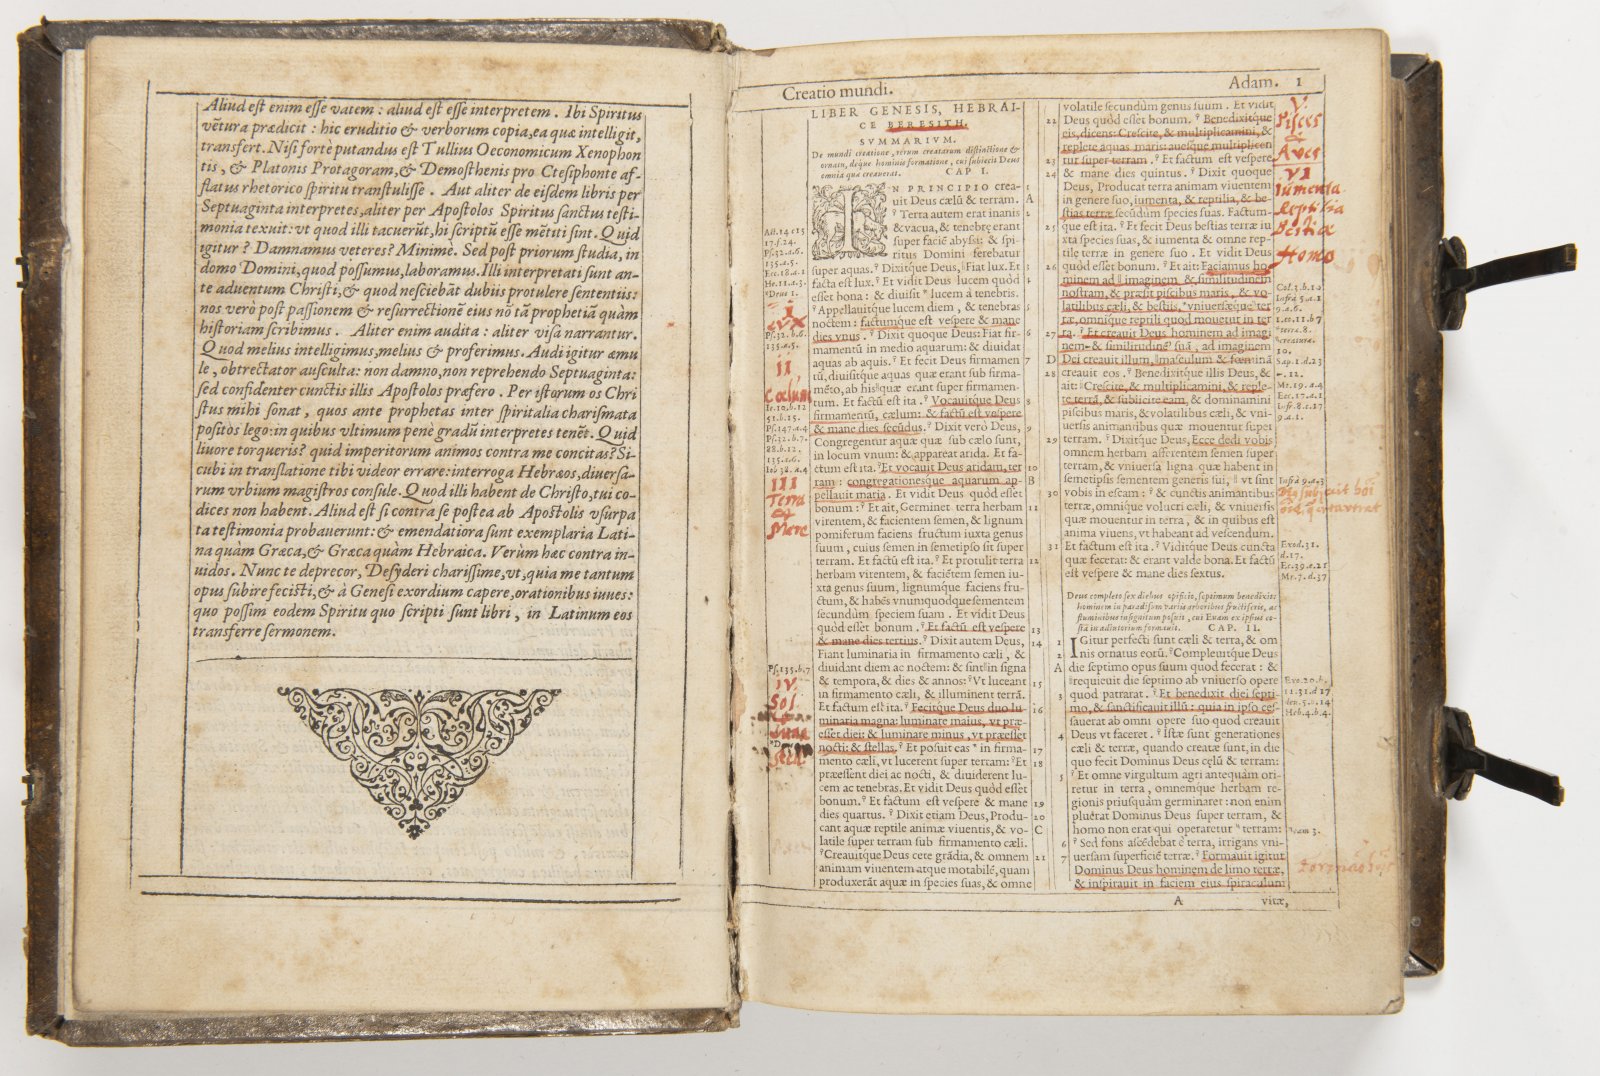 Aliud est enim esse vatem : aliud est esse interpretem. Ibi Spiritus
vētura prædicit : hic eruditio & verborum copia, ea quæ intelligit,
transfert. Nisi fortè putandus est Tullius Oeconomicum Xenophon
tis, & Platonis Protagoram, & Demosthenis pro Ctesiphonte af-
flatus rhetorico spiritu transtulisse . Aut aliter de eisdem libris per
Septuaginta interpretes, aliter per Apostolos Spiritus sanctus testi-
monia texuit: vt quod illi tacuerūt, hi scriptū esse mētiti sint. Quid
igitur ? Damnamus veteres? Minimè. Sed post priorum studia, in
domo Domini, quod possumus, laboramus. Illi interpretati sunt an-
te aduentum Christi, & quod nesciebāt dubiis protulere sententiis:
nos verò post passionem & resurrectionē eius nō tā prophetiā quàm
historiam scribimus . Aliter enim audita : aliter visa narrantur.
Quod melius intelligimus, melius & proferimus. Audi igitur æmu
le, obtrectator ausculta: non damno, non reprehendo Septuaginta:
sed confidenter cunctis illis Apostolos præfero . Per istorum os Chri
stus mihi sonat , quos ante prophetas inter spiritalia charismata
positos lego: in quibus vltimum penè gradū interpretes tenēt. Quid
liuore torqueris? quid imperitorum animos contra me concitas? Si-
cubi in translatione tibi videor errare: interroga Hebræos, diuersa-
rum vrbium magistros consule. Quod illi habent de Christo, tui co-
dices non habent. Aliud est si contra se postea ab Apostolis vsurpa
ta testimonia probauerunt: & emendatiora sunt exemplaria Lati-
na quàm Græca, & Græca quàm Hebraica. Verùm hæc contra in-
uidos. Nunc te deprecor, Desyderi charissime, vt, quia me tantum
opus subire fecisti, & à Genesi exordium capere, orationibus iuues:
quo possim eodem Spiritu quo scripti sunt libri , in Latinum eos
transferre sermonem.
Creatio mundi.
Adam. 1
LIBER GENESIS, HEBRAI-
CE BERESITH.
SVMMARIVM.
De mundi creatione, rerum creatarum distinctione &
ornatu, deque hominis formatione, cui subiecit Deus
omnia quæ creauerat. CAP I.
IN PRINCIPIO crea- 1
uit Deus cælū & terram. A
? Terra autem erat inanis 2
& vacua, & tenebrę erant
super faciē abyssi: & spi-
ritus Domini ferebatur
super aquas. ? Dixitque Deus, Fiat lux. Et 3
facta est lux. ? Et vidit Deus lucem quòd 4
esset bona: & diuisit lucem à tenebris.
? Appellauitque lucem diem , & tenebras 5
noctem : factumque est vespere & mane
dies vnus. ? Dixit quoque Deus: Fiat fir- 6
mamentū in medio aquarum: & diuidat
aquas ab aquis. ? Et fecit Deus firmamen 7
tū, diuisitque aquas quæ erant sub firma-
mēto, ab his quæ erant super firmamen-
tum. Et factū est ita. ? Vocauitque Deus 8
firmamentū, cælum: & factū est vespere
& mane dies secūdus. ? Dixit verò Deus, 9
Congregentur aquæ quæ sub cælo sunt,
in locum vnum: & appareat arida. Et fa-
ctum est ita. ? Et vocauit Deus aridam, ter 10
ram : congregationesque aquarum ap- B
pellauit maria . Et vidit Deus quòd esset
bonum : ? Et ait, Germinet terra herbam 11
virentem, & facientem semen, & lignum
pomiferum faciens fructum iuxta genus
suum , cuius semen in semetipso sit super
terram. Et factū est ita. ? Et protulit terra 12
herbam virentem, & faciētem semen iu-
xta genus suum, lignumque faciens fru-
ctum, & habēs vnumquodque sementem
secundùm speciem suam . Et vidit Deus
quòd esset bonum . ? Et factū est vespere 13
& mane dies tertius. ? Dixit autem Deus, 14
Fiant luminaria in firmamento cæli , &
diuidant diem ac noctem: & sint in signa
& tempora, & dies & annos: ? Vt luceant 15
in firmamento cæli, & illuminent terrā.
Et factum est ita . ? Fecitque Deus duo lu- 16
minaria magna: luminare maius, vt præ-
esset diei: & luminare minus, vt præesset
nocti: & stellas. ? Et posuit eas in firma- 17
mento cæli, vt lucerent super terram: ? Et 18
præessent diei ac nocti, & diuiderent lu-
cem ac tenebras. Et vidit Deus quòd esset
bonum. ? Et factum est vespere & mane 19
dies quartus. ? Dixit etiam Deus, Produ- 20
cant aquæ reptile animæ viuentis, & vo- C
latile super terram sub firmamento cæli.
? Creauitque Deus cete grādia, & omnem 21
animam viuentem atque motabilē, quam
produxerāt aquæ in species suas, & omne
Act. 14. c 15
17. f. 24.
Ps. 32. a. 6.
135. a. 5.
Ecc. 18. a. 1
He. 11. a. 3.
I
Lux
Ps. 32. b. 6.
135. a. 5.
II
Cœlum
Ie. 10. b. 12
51. b. 15.
Ps. 147. a. 4
Ps. 32. b. 7.
88. b. 12.
135. a. 6.
Iob 38. a. 4
III
Terra
et
Mare
Ps. 135. b. 7
IV.
Sol
volatile secundùm genus suum . Et vidit
22 Deus quòd esset bonum. ? Benedixitque
eis, dicens: Crescite, & multiplicamini, &
replete aquas maris: auesque multiplicen
23 tur super terram . ? Et factum est vespere
24 & mane dies quintus. ? Dixit quoque
Deus, Producat terra animam viuentem
in genere suo, iumenta, & reptilia, & be-
stias terræ secūdùm species suas. Factum-
25 que est ita. ? Et fecit Deus bestias terræ iu
xta species suas, & iumenta & omne rep-
tile terræ in genere suo . Et vidit Deus
26 quòd esset bonum. ? Et ait: Faciamus ho
minem ad imaginem & similitudinem
nostram, & præsit piscibus maris , & vo-
latilibus cæli, & bestiis, vniuersæque ter
ræ, omnique reptili quod mouetur in ter
27 ra. ? Et creauit Deus hominem ad imagi
nem & similitudinē suā , ad imaginem
D Dei creauit illum, masculum & fœminā
28 creauit eos. ? Benedixitque illis Deus, &
ait: Crescite, & multiplicamini, & reple-
te terrā, & subiicite eam, & dominamini
piscibus maris, & volatilibus cæli, & vni-
uersis animantibus quæ mouentur super
29 terram. ? Dixitque Deus, Ecce dedi vobis
omnem herbam afferentem semen super
terram, & vniuersa ligna quæ habent in
semetipsis sementem generis sui, vt sint
30 vobis in escam : ? & cunctis animantibus
terræ, omnique volucri cæli, & vniuersis
quæ mouentur in terra , & in quibus est
anima viuens, vt habeant ad vescendum.
31 Et factum est ita. ? Viditque Deus cuncta
quæ fecerat: & erant valde bona. Et factū
est vespere & mane dies sextus.
Deus completo sex diebus opificio, septimum benedixit:
hominem in paradisum variis arboribus fructiferis, ac
fluminibus insignitum posuit , cui Euam ex ipsius co-
sta in adiutorium formauit. CAP. II.
1 IGitur perfecti sunt cæli & terra, & om
2 nis ornatus eorū. ? Compleuitque Deus
A die septimo opus suum quod fecerat : &
requieuit die septimo ab vniuerso opere
3 quod patrarat. ? Et benedixit diei septi-
mo, & sanctificauit illū : quia in ipso ces
sauerat ab omni opere suo quod creauit
4 Deus vt faceret. ? Istæ sunt generationes
cæli & terræ, quando creatæ sunt, in die
quo fecit Dominus Deus cęlū & terram:
5 ? Et omne virgultum agri antequàm ori-
retur in terra , omnemque herbam re-
gionis priusquàm germinaret : non enim
pluērat Dominus Deus super terram, &
homo non erat qui operaretur terram:
6 ? Sed fons ascēdebat è terra, irrigans vni-
7 uersam superficiē terræ. ? Formauit igitur
Dominus Deus hominem de limo terræ,
& inspirauit in faciem eius spiraculum
A vitæ,
V.
Pisces
&
Aves
VI
Iumenta
Reptilia
Bestiæ
Homo
Col. 3. b. 10
Infrà 5. a. 1
9. a. 6.
1. co. 11. b. 7
terra. 8.
creaturæ.
10.
Sap. 1. d. 23
Mt. 19. a. 4
Ecc. 17. a. 1
Infr. 8. c. 17
9. a. 1.
Infrà 9. a. 3
Exod. 31.
d. 17.
Ec. 39. c. 21
Mr. 7. d. 37
Exo. 20. b.
11. 31. d 17
deu. 5. b. 14
Heb. 4. b. 4.